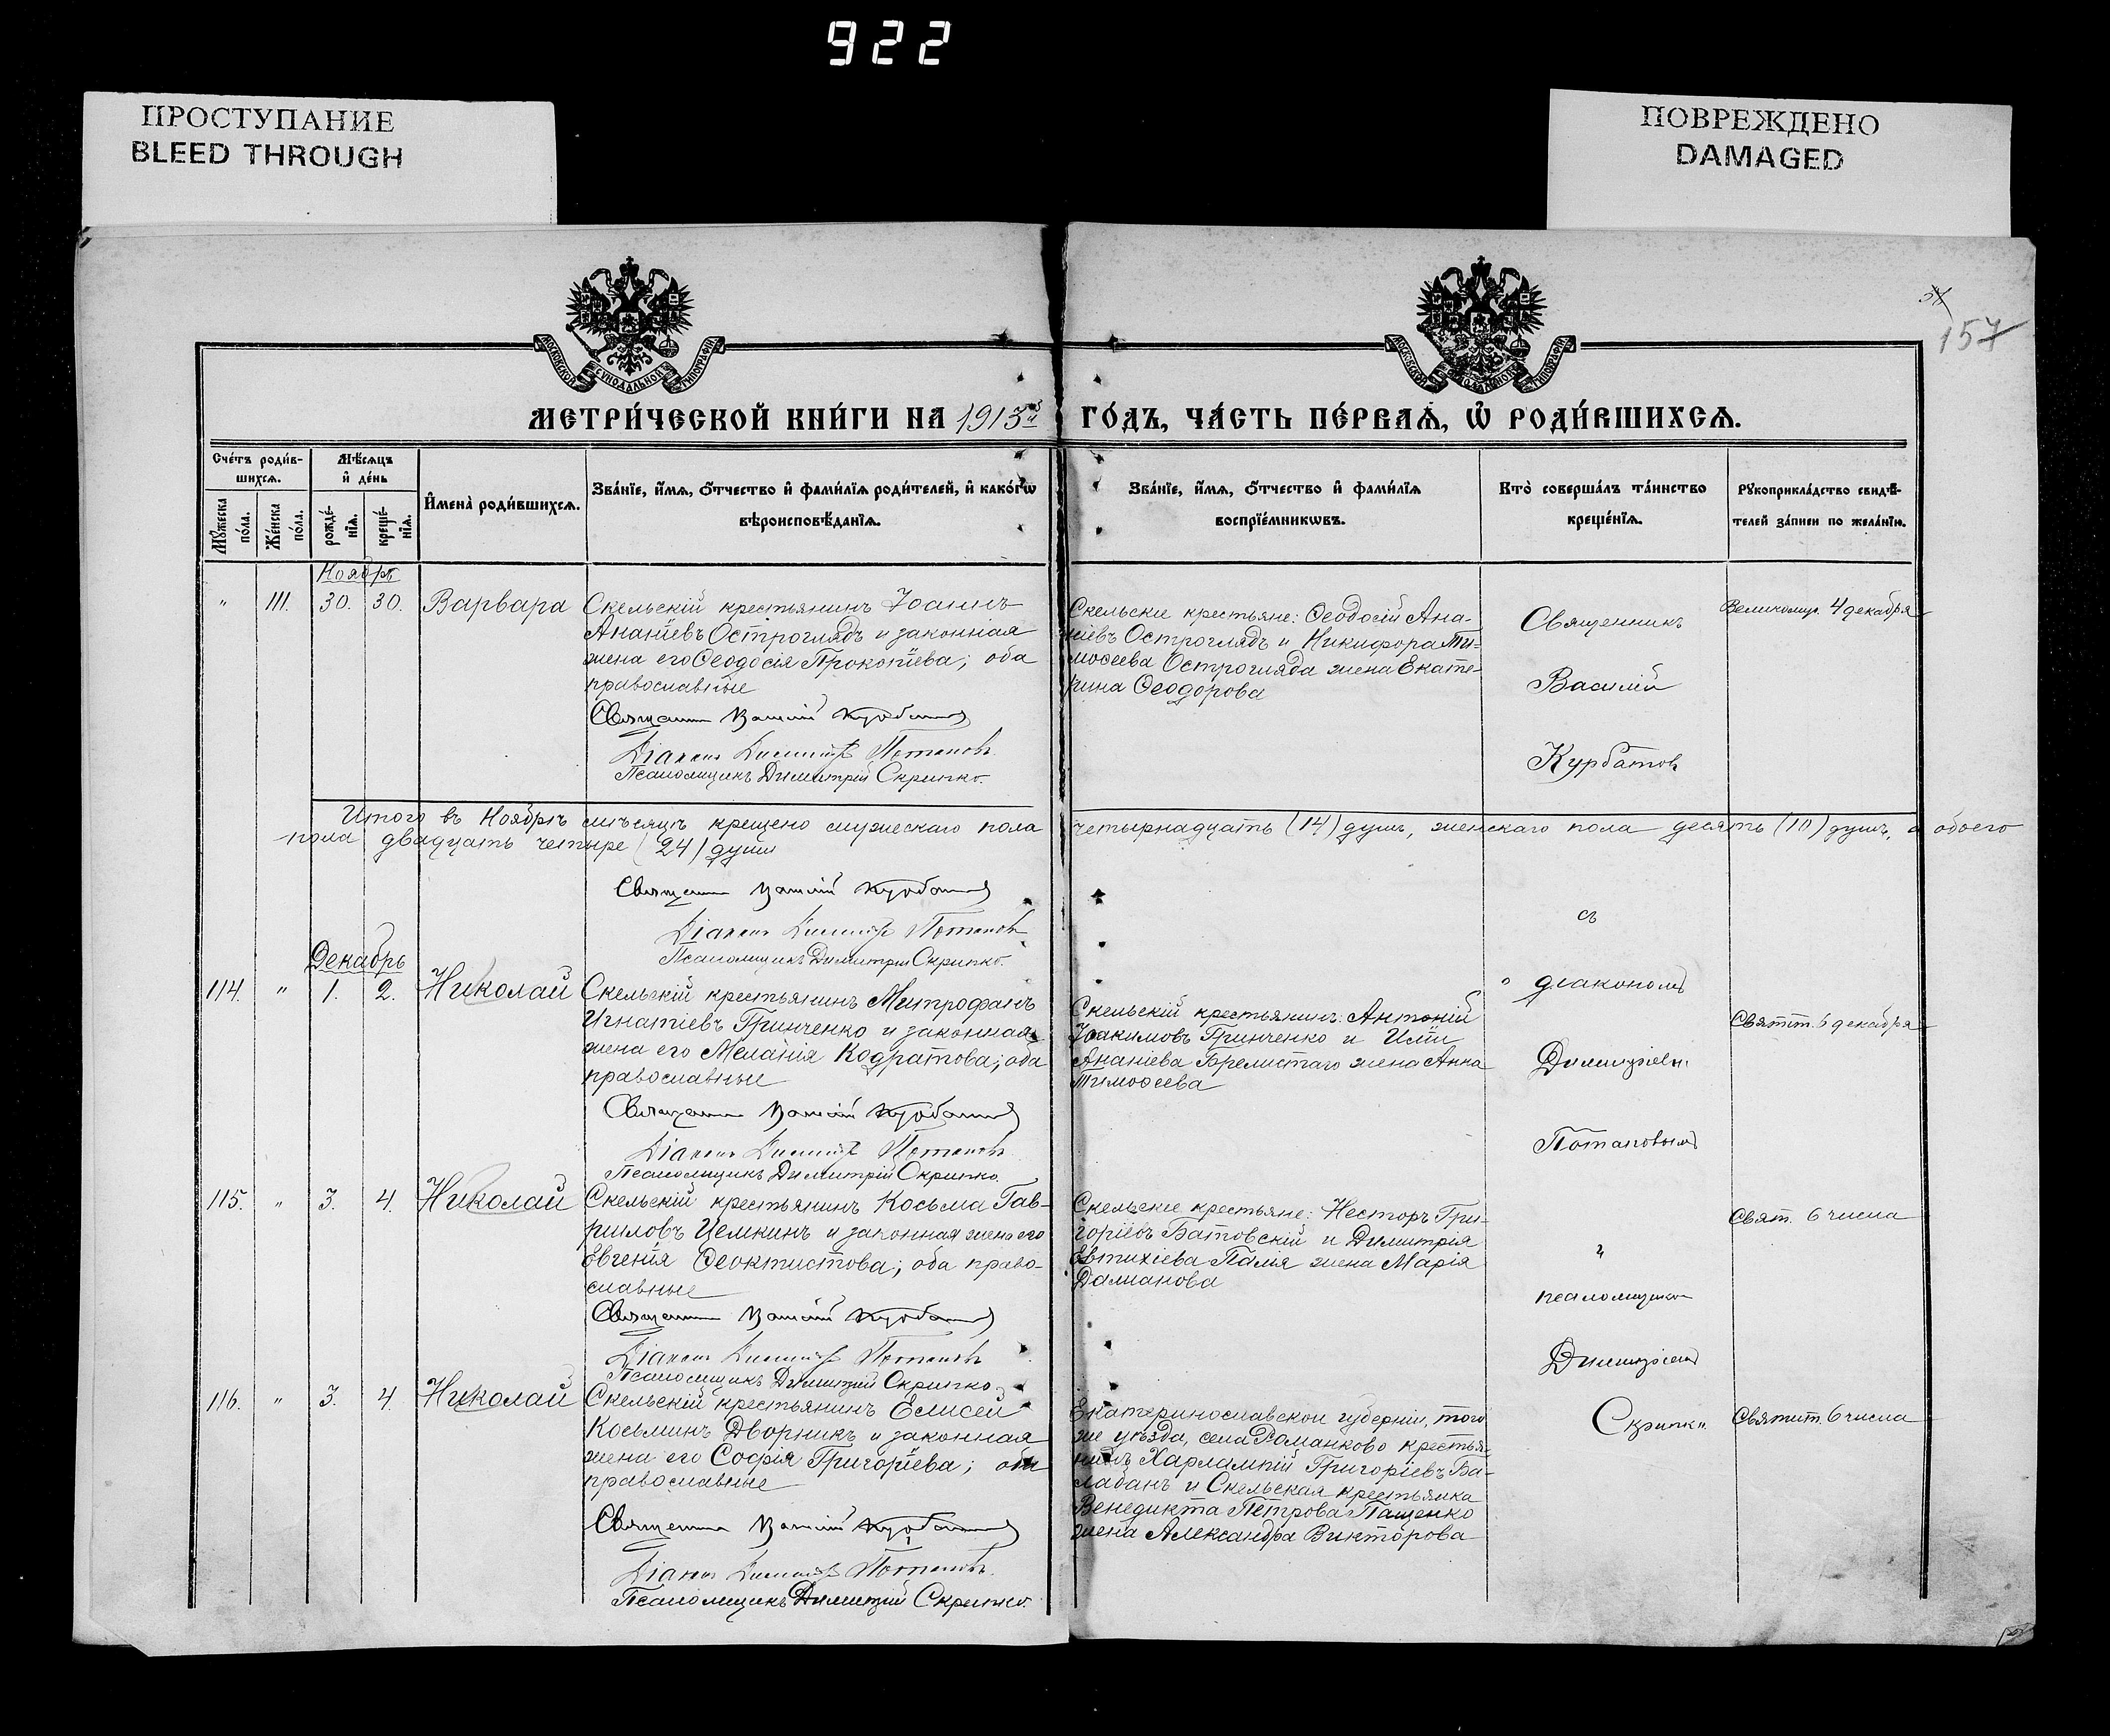 922
ПРОСТУПАНИЕ
BLEED THROUGH
ПОВРЕЖДЕНО
DAMAGED
157
МОСКОВСКОЙ СУНОДАЛЬНОЙ ТИПОГРАФІИ
МОСКОВСКОЙ СУНОДАЛЬНОЙ ТИПОГРАФІИ
МЕТРИ́ЧЕСКОЙ КНИ́ГИ НА 1913й ГО́ДЪ, ЧА́СТЬ ПЕ́РВАѦ, Ѡ РОДИ́ВШИХСѦ.
Сче́тъ роди́в-
шихсѧ.
Мꙋ́жеска
по́ла.
Же́нска
по́ла.
Мѣ́сѧцъ
и҆ де́нь
рожде́-
нїѧ.
креще́-
нїѧ.
И҆мена̀ роди́вшихсѧ.
Зва́нїе, и҆́мѧ, ѻ҆́тчество и҆ фами́лїѧ роди́телей, и҆ како́гѡ
вѣроисповѣ́данїѧ.
Зва́нїе, и҆́мѧ, ѻ҆́тчество и҆ фами́лїѧ
воспрїе́мникѡвъ.
Кто̀ соверша́лъ та́инство
креще́нїѧ.
Рꙋкоприкла́дство свидѣ́-
телей за́писи по жела́нїю.
Ноябрь
" 111. 30. 30. Варвара
Скельскій крестьянинъ Іоаннъ
Ананіевъ Остроглядъ и законная
жена его Ѳеодосія Прокопіева; оба
православные
Священникъ Василій Курбатовъ
Діаконъ Димитрій Потаповъ
Псаломщикъ Димитрій Скрипко.
Скельскіе крестьяне: Ѳеодосій Ана-
ніевъ Остроглядъ и Никифора Ти-
моѳеева Остроглядa жена Екате-
рина Ѳеодорова
Священникъ
Василій
Курбатовъ
Великомуч. 4 декабря
Итого въ Ноябрѣ мѣсяцѣ крещено мужескаго пола четырнадцать (14) душъ, женскаго пола десять (10) душъ, а обоего
пола двадцать четыре (24) души
Священникъ Василій Курбатовъ
Діаконъ Димитрій Потаповъ
Псаломщикъ Димитрій Скрипко.
Декабрь
114. " 1. 2. Николай
Скельскій крестьянинъ Митрофанъ
Игнатіевъ Гринченко и законная
жена его Меланія Кодратова; оба
православные
Священникъ Василій Курбатовъ
Діаконъ Димитрій Потаповъ
Псаломщикъ Димитрій Скрипко.
Скельскій крестьянинъ: Антоній
Іоакимовъ Гринченко и Иліи
Ананіева жена Анна
Тимоѳеева
съ
діакономъ
Димитріемъ
Потаповымъ
Святит. 6 декабря
115. " 3. 4. Николай
Скельскій крестьянинъ Косьма Гав-
риловъ Цемкинъ и законная жена его
Евгенія Ѳеоктистова; оба право-
славные
Священникъ Василій Курбатовъ
Діаконъ Димитрій Потаповъ
Псаломщикъ Димитрій Скрипко.
Скельскіе крестьяне: Несторъ Гри-
горіевъ Батовскій и Димитрія
Евтихіева Палія жена Марія
Даміанова
и
псаломщикомъ
Димитріемъ
Скрипко
Свят. 6 числа
116. " 3. 4. Николай
Скельскій крестьянинъ Елисей
Косьминъ Дворникъ и законная
жена его Софія Григоріева; оба
православные
Священникъ Василій Курбатовъ
Діаконъ Димитрій Потаповъ
Псаломщикъ Димитрій Скрипко.
Екатеринославской губерніи, того
же уѣзда, села Романково крестья-
нинъ Харлампій Григоріевъ Ба-
лабанъ и Скельская крестьянка
Венедикта Петрова Пащенко
жена Александра Викторова
Святит. 6 числа